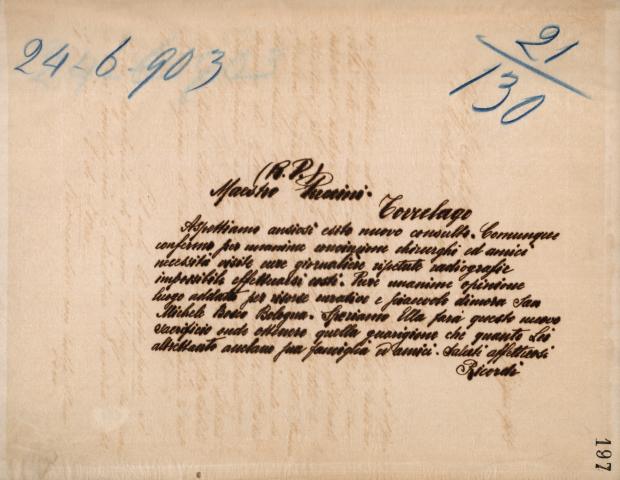 24-6-903
21
130
(R. P.)
Maestro Puccini.
Torrelago
Aspettiamo ansiosi esito nuovo consulto. Comunque
confermo per unanime convinzione chirurghi ed amici
necessità visite cure giornaliere ripetute radiografie
impossibile effettuarsi costì. Pure unanime opinione
luogo addatto per risorse curative e piacevole dimora San
Michele Bosco Bologna. Speriamo Ella farà questo nuovo
sacrificio onde ottenere quella guarigione che quanto Lei
altrettanto anelano sua famiglia ed amici. Saluti affettuosi
Ricordi
197